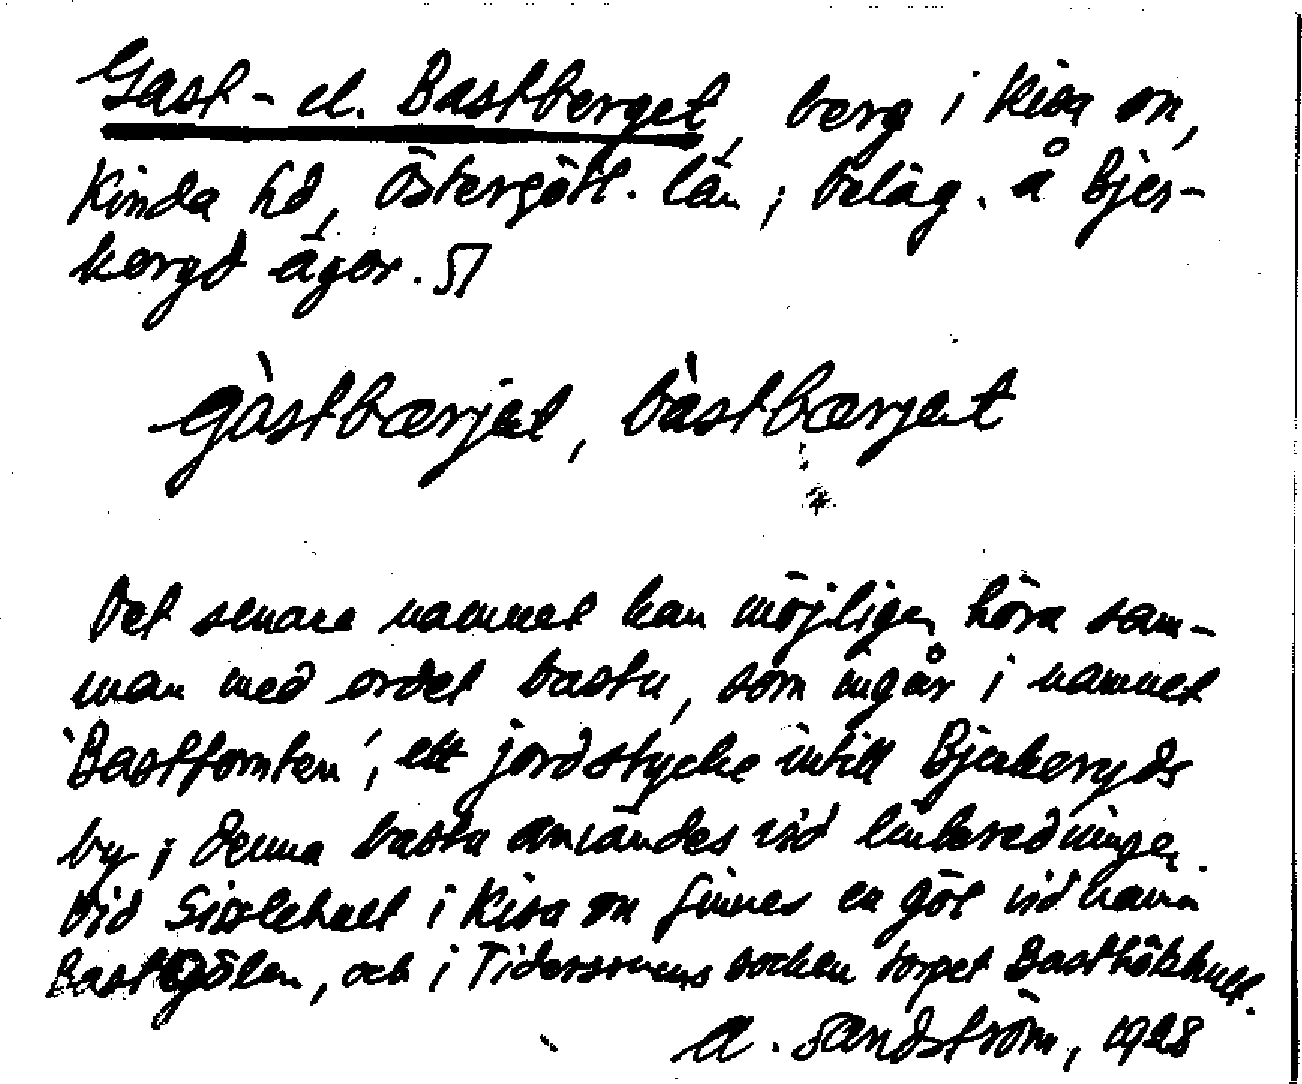 Gast- el. Bastberget, berg i Kisa sn,
Kinda hd, Östergötl. län; beläg. å Bjer-
keryd ägor.
gàstbærjet, bàstbærjet
Det senare namnet kan möjligen höra sam-
man med ordet bastu, som ingår i namnet
'Basttomten', ett jordstycke intill Bjerkeryds
by; denna bastu användes vid linberedningen.
Vid Sisslehult i Kisa sn finnes en göl vid namn
Bastgölen, och i Tidersrums socken torpet Basthökhult.
A. Sandström, 1928